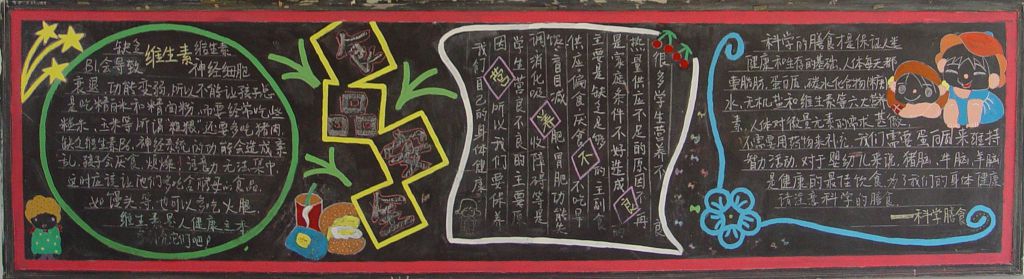 缺乏维生素 维生素
B1会导致 神经细胞
衰退,功能变弱,所以不能让孩子总
是吃精白米和精面粉,而要经常吃些
糙米、玉米等所谓粗粮,还要多吃猪肉
缺乏维生素B6,神经系统的功能会造成紊
乱,孩子会厌食、烦燥、注意力无法集中
这时应该让他们多吃含酵母的食品,
如馒头等,也可以多吃火腿,
维生素是人健康之本
很多学生营养不
良是供应不足的原因,
是家庭条件不好造成
主要是缺乏足够的
供应偏食、厌食、不吃早
饭、盲目减肥、胃肠功能失
调、消化吸收障碍等是
学生营养不良的主要原
因,所以我们要保养
我们自己的身体健康
营养不良
科学的膳食是保证人生
健康和生存的基础,人体每天都
要脂肪、蛋白质、碳水化合物、
水、无机盐和维生素等六大营养
素,人体对微量元素的需求甚低
不需用药物来补充,我们需要蛋白质来维持
智力活动,对于婴幼儿来说,猪脑、牛脑、羊脑
是健康的最佳饮食,为了我们的身体健康
请注意科学的膳食。
——科学膳食